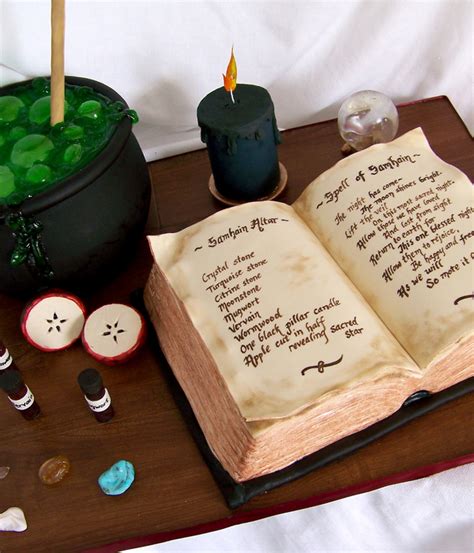 ~ Samhain Altar ~
Crystal stone
Turquoise stone
Citrine stone
Moonstone
Mugwort
Vervain
Wormwood
One black pillar candle
Apple cut in half
revealing sacred
star
~ Spell of Samhain ~
The night has come~
The moon shines bright.
Lift the veil on this most sacred night.
Allow those we have loved
And lost from sight
Return to earth for
This one blessed night
Allow them to rejoice,
Be happy and
As we will
So mote it